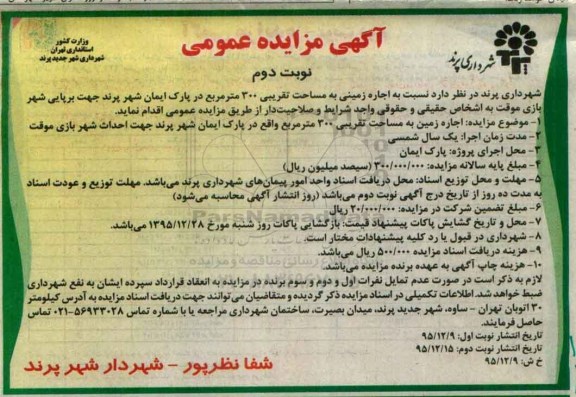 وزارت کشور
استانداری تهران
شهرداری شهر جدید پرند
آگهی مزایده عمومی
شهرداری پرند
نوبت دوم
شهرداری پرند در نظر دارد نسبت به اجاره زمینی به مساحت تقریبی ۳۰۰ مترمربع در پارک ایمان شهر پرند جهت برپایی شهر
بازی موقت به اشخاص حقیقی و حقوقی واجد شرایط و صلاحیت‌دار از طریق مزایده عمومی اقدام نماید.
۱- موضوع مزایده: اجاره زمین به مساحت تقریبی ۳۰۰ مترمربع واقع در پارک ایمان شهر پرند جهت احداث شهر بازی موقت
۲- مدت زمان اجرا: یک سال شمسی
۳- محل اجرای پروژه: پارک ایمان
۴- مبلغ پایه سالانه مزایده: ۳۰۰/۰۰۰/۰۰۰ (سیصد میلیون ریال)
۵- مهلت و محل توزیع اسناد: محل دریافت اسناد واحد امور پیمان‌های شهرداری پرند می‌باشد. مهلت توزیع و عودت اسناد
به مدت ده روز از تاریخ درج آگهی نوبت دوم می‌باشد (روز انتشار آگهی محاسبه می‌شود)
۶- مبلغ تضمین شرکت در مزایده: ۲۰/۰۰۰/۰۰۰ ریال
۷- محل و تاریخ گشایش پاکات پیشنهاد قیمت: بازگشایی پاکات روز شنبه مورخ ۱۳۹۵/۱۲/۲۸ می‌باشد.
۸- شهرداری در قبول یا رد کلیه پیشنهادات مختار است.
۹- هزینه دریافت اسناد مزایده ۵۰۰/۰۰۰ ریال می‌باشد.
۱۰- هزینه چاپ آگهی به عهده برنده مزایده می‌باشد.
لازم به ذکر است در صورت عدم تمایل نفرات اول و دوم و سوم برنده در مزایده به انعقاد قرارداد سپرده ایشان به نفع شهرداری
ضبط خواهد شد. اطلاعات تکمیلی در اسناد مزایده ذکر گردیده و متقاضیان می‌توانند جهت دریافت اسناد مزایده به آدرس کیلومتر
۳۰ اتوبان تهران - ساوه، شهر جدید پرند، میدان بصیرت، ساختمان شهرداری مراجعه یا با شماره تماس ۵۶۹۳۳۰۲۸-۰۲۱ تماس
حاصل فرمایند.
تاریخ انتشار نوبت اول: ۹۵/۱۲/۹
تاریخ انتشار نوبت دوم: ۹۵/۱۲/۱۵
خ ش: ۹۵/۱۲/۹
شفا نظرپور - شهردار شهر پرند